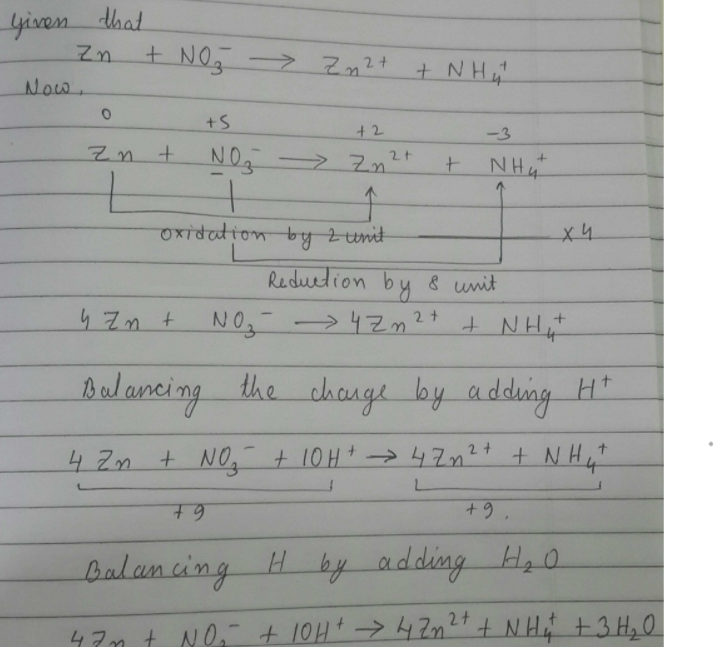 Given that
Zn + NO₃⁻ → Zn²⁺ + NH₄⁺
Now,
0 +5 +2 -3
Zn + NO₃⁻ → Zn²⁺ + NH₄⁺
oxidation by 2 unit × 4
Reduction by 8 unit
4 Zn + NO₃⁻ → 4 Zn²⁺ + NH₄⁺
Balancing the charge by adding H⁺
4 Zn + NO₃⁻ + 10H⁺ → 4 Zn²⁺ + NH₄⁺
+9 +9.
Balancing H by adding H₂O
4 Zn + NO₃⁻ + 10H⁺ → 4Zn²⁺ + NH₄⁺ + 3H₂O